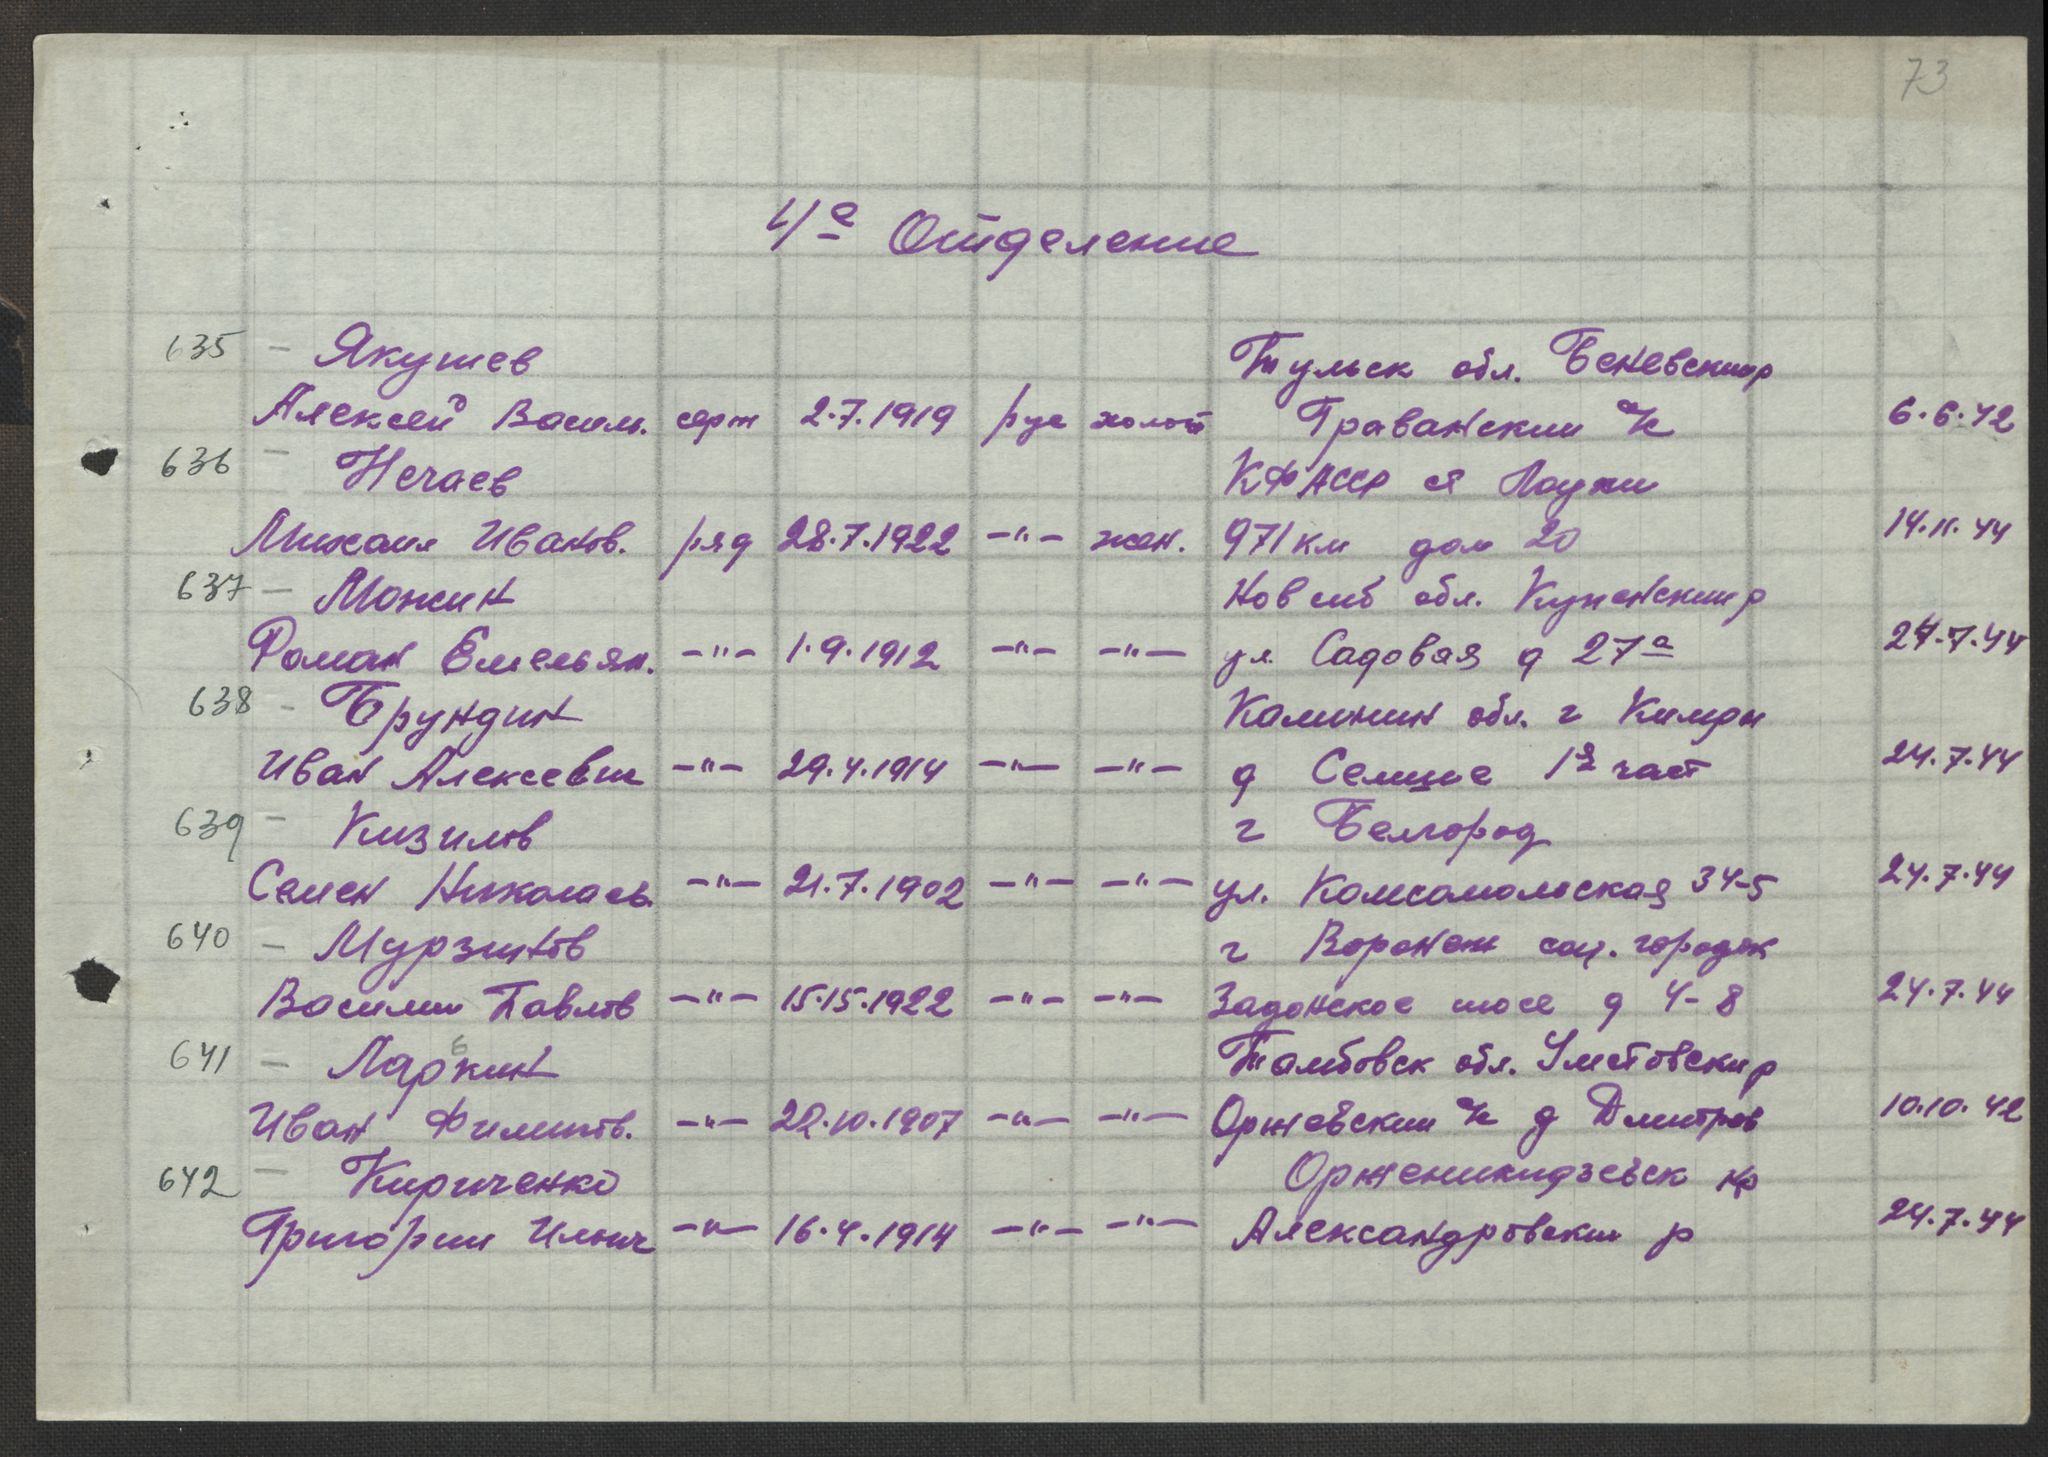 73
4е Отделение
635 - Якушев Тульск обл. Беневский р
Алексей Василь. серж 2.7.1919 рус холост Граванский с/с 6.6.42
636 - Нечаев КФАССР ст Лоухи
Михаил Иванов. ряд 28.7.1922 -"- жен. 971 км дом 20 14.11.44
637 - Можин Новсиб обл.
Роман Емельян. -"- 1.9.1912 -"- -"- ул. Садовая д 27а 24.7.44
638 - Брундин Калинин обл. г Кимры
Иван Алексевич -"- 29.4.1914 -"- -"- д Селище 1я част 24.7.44
639 - Кизилов г Белгород
Семен Николаев. -"- 21.7.1902 -"- -"- ул. Комсомольская 34-5 24.7.44
640 - Мурзинов г Воронеж соц. городок
Василий Павлов -"- 15.15.1922 -"- -"- Задонское шосе д 4-8 24.7.44
641 - Ларкин Тамбовск обл. Уметовский р
Иван Филипов. -"- 22.10.1907 -"- -"- Оржевский с/с д Дмитров 10.10.42
642 - Кириченко Орженикидзевск кр
Григорий Ильич -"- 16.4.1914 -"- -"- Александровский р 24.7.44